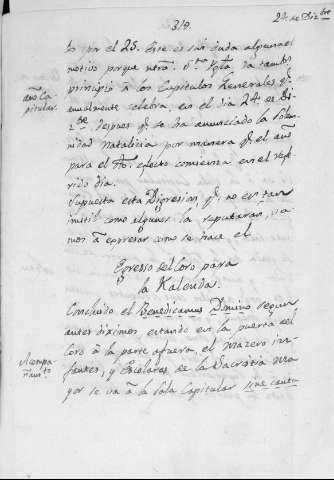 319.
24 de Dizbre
lo por el 25. Este es sin duda alguna el
motivo porque nrâ. Sta. Yglâ. da tambn.
principio à los Capitulos Generales q.
año Ca-
pitular.
anualmente celebra, en el dia 24 de Di-
zbre. despues q. se ha anunciado la solem-
nidad Natalicia por manera q. el año
para el dho. efecto comienza en el refe-
rido dia.
Supuesta esta Digresion, q. no es tan
inutil como algunos la reputaràn, va-
mos à expresar como se hace el
Egresso del Coro para
la Kalenda.
Concluido el Benedicamus Domino segun
antes diximos estando en la puerta del
Coro à la parte afuera, el Mazero in-
Acompa-
ñamto.
fantes, y Escolares de la Sacristia Ma-
yor se va à la Sala Capitular sine cantu